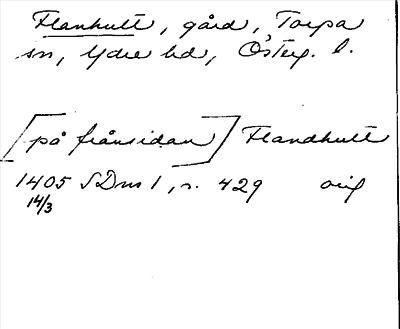 Flanhult, gård, Torpa
sn, Ydre hd, Österg. l.
[på frånsidan] Flandhult
1405 SDns 1, s. 429 orig
14/3